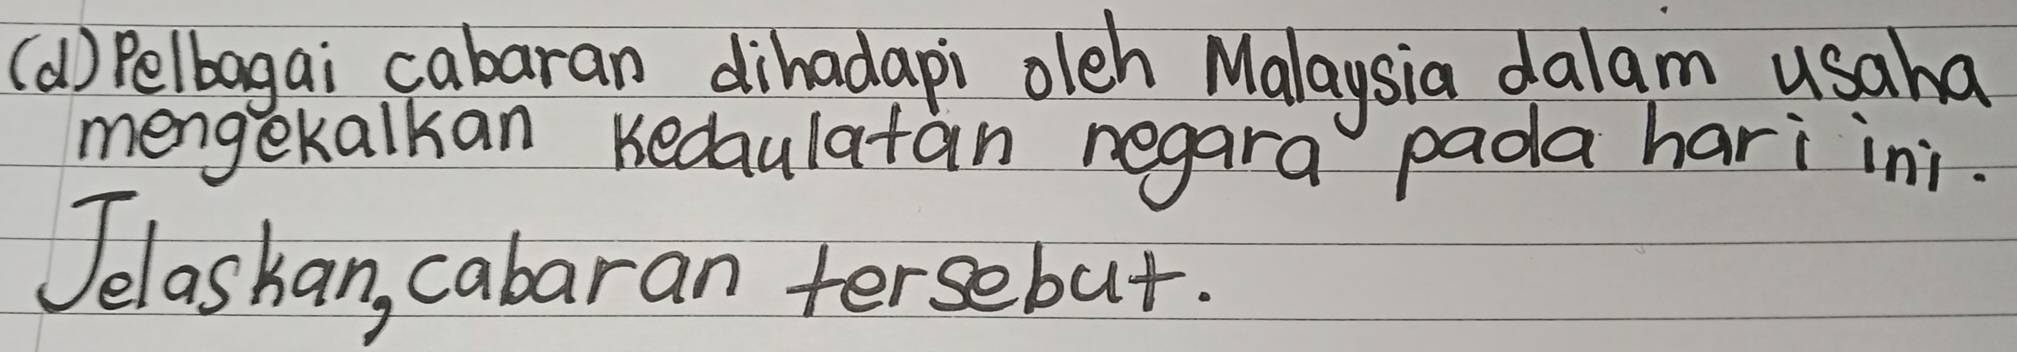 (d) Pelbagai cabaran dihadapi oleh Malaysia dalam usaha
mengekalkan kedaulatan negara pada hari ini.
Jelaskan, cabaran tersebut.